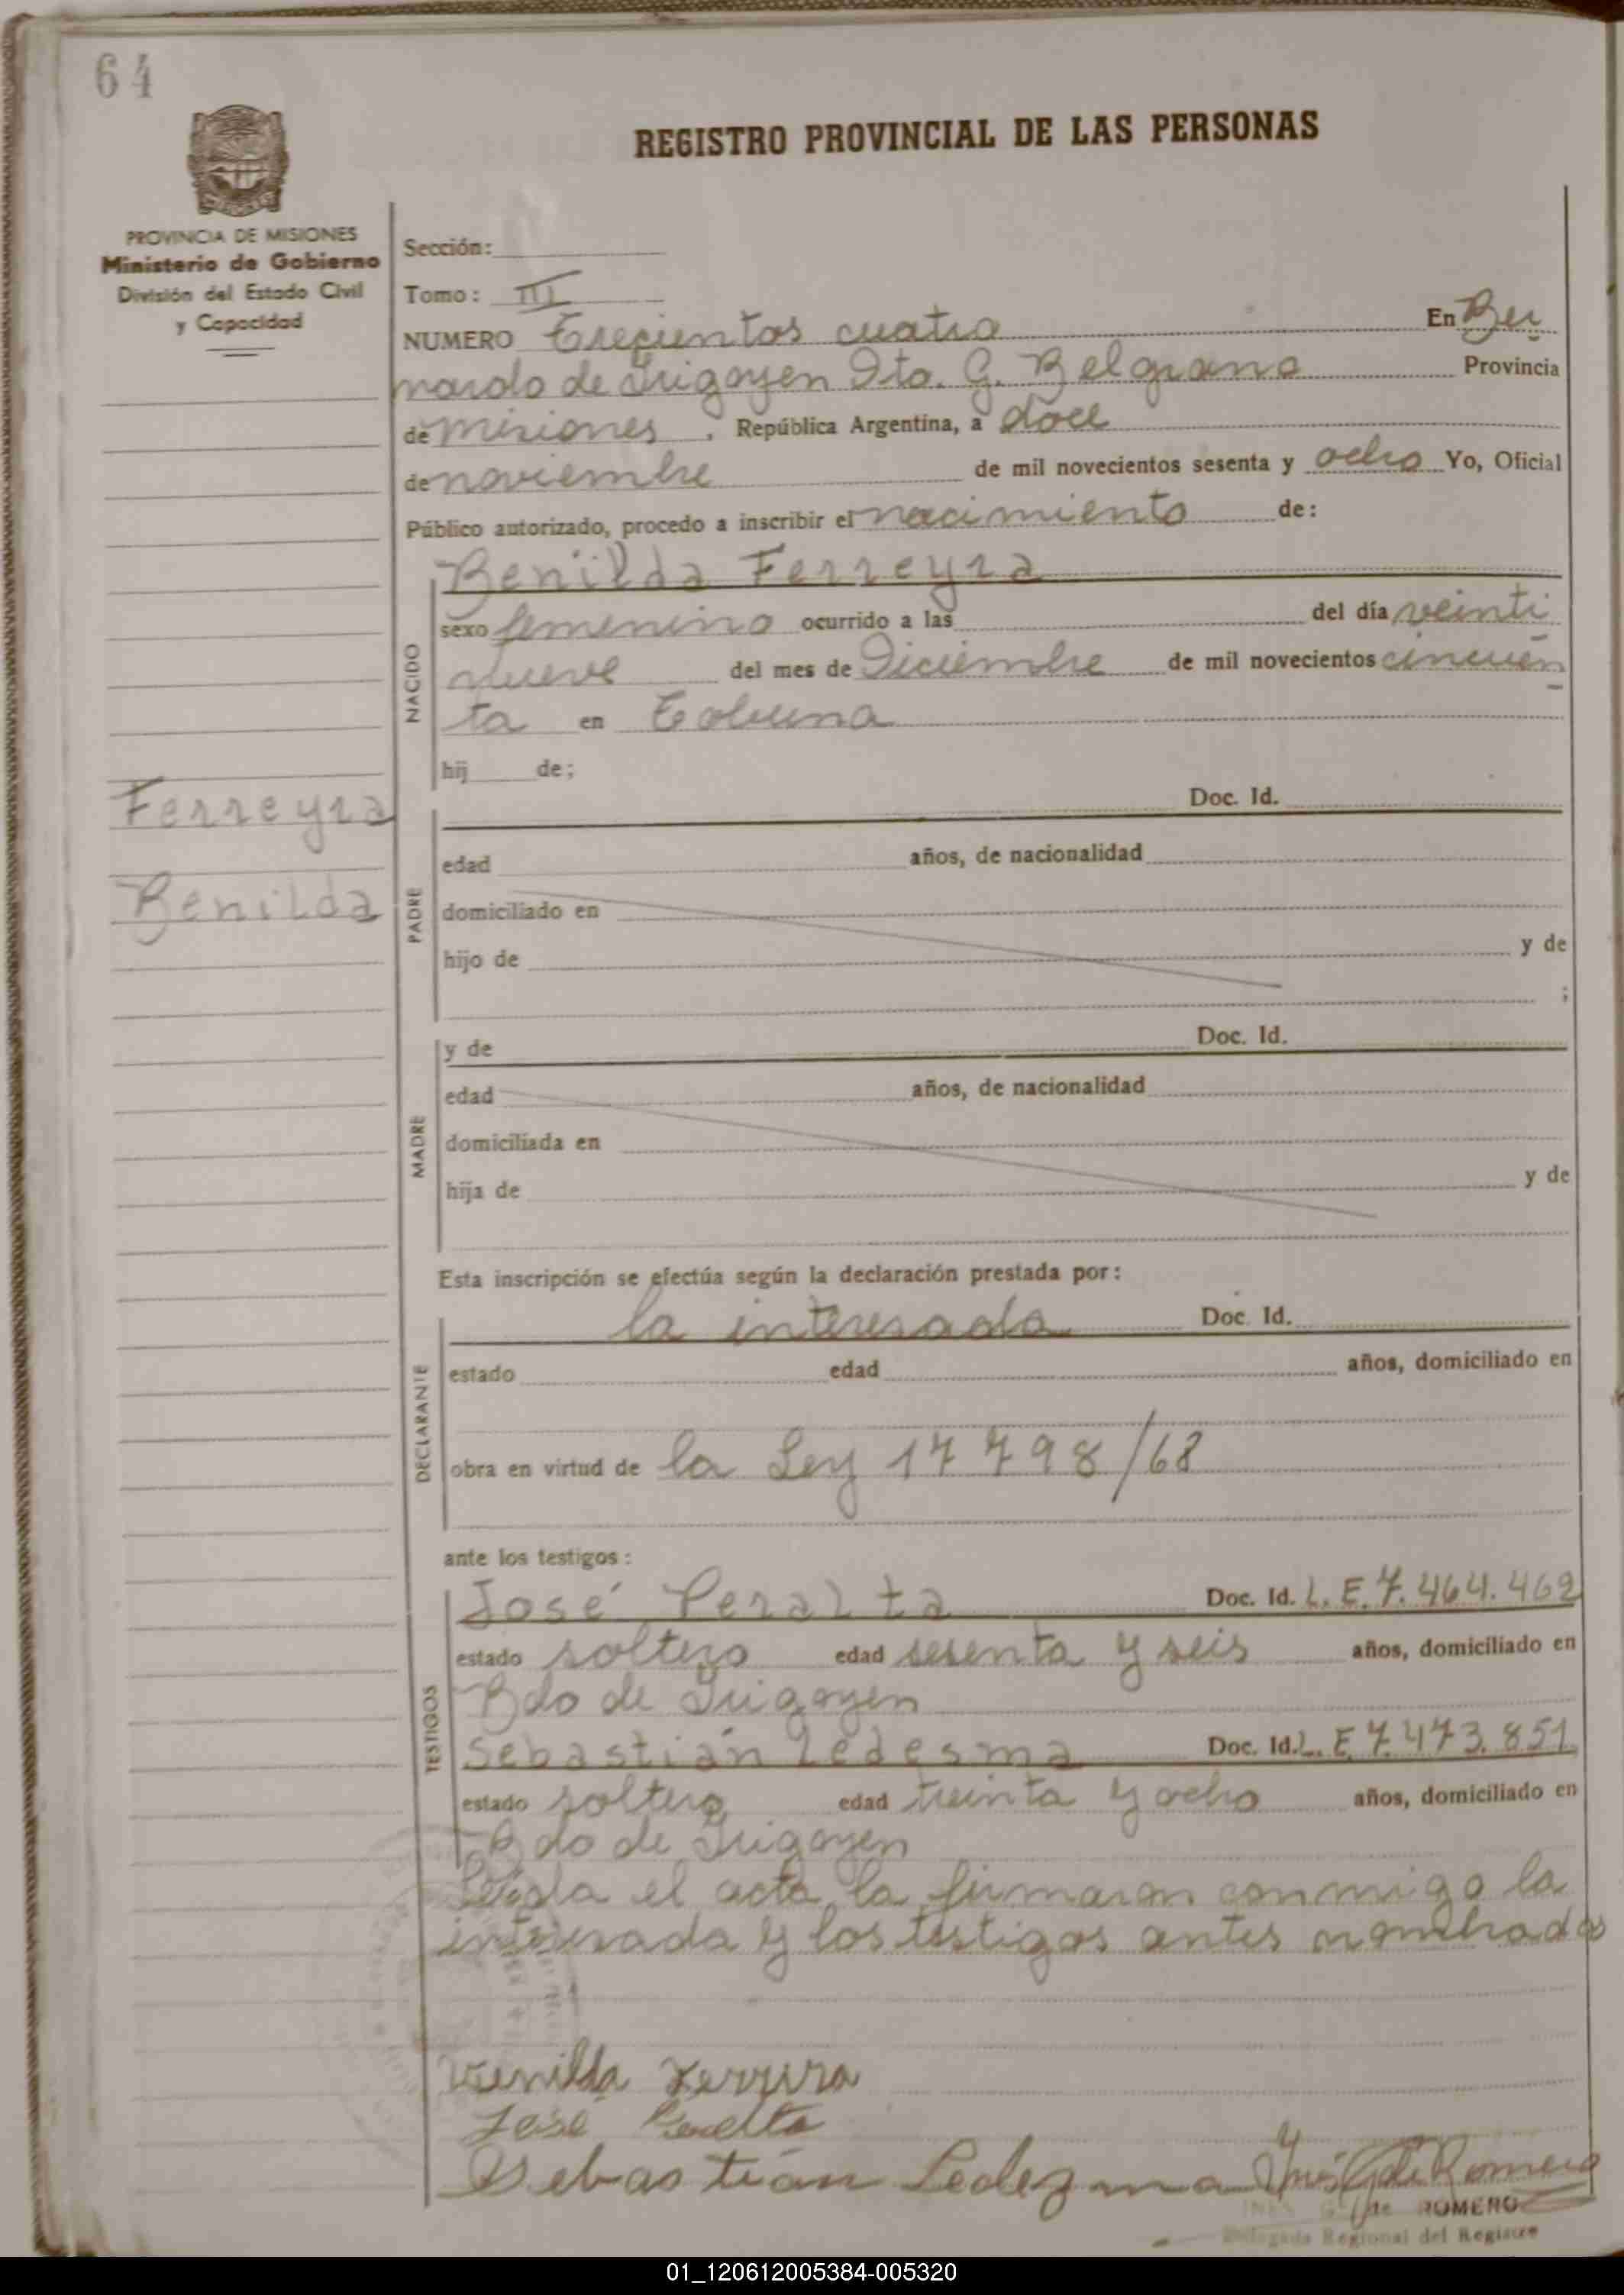 64
REGISTRO PROVINCIAL DE LAS PERSONAS
PROVINCIA DE MISIONES
Ministerio de Gobierno
División del Estado Civil
y Capacidad
Sección:
Tomo: III
NUMERO Trecientos cuatro En Ber
nardo de Irigoyen Dto. G. Belgrano Provincia
de misiones , República Argentina, a doce
de noviembre de mil novecientos sesenta y ocho Yo, Oficial
Público autorizado, procedo a inscribir el nacimiento de:
Benilda Ferreyra
NACIDO
sexo femenino ocurrido a las del día veinti
nueve del mes de Diciembre de mil novecientos cincuen
ta en Tobuna
hij de;
Ferreyra
Benilda
PADRE
Doc. Id.
edad años, de nacionalidad
domiciliado en
hijo de y de
;
MADRE
y de Doc. Id.
edad años, de nacionalidad
domiciliada en
hija de y de
Esta inscripción se efectúa según la declaración prestada por:
DECLARANTE
la interesada Doc. Id.
estado edad años, domiciliado en
obra en virtud de la Ley 17798/68
ante los testigos:
TESTIGOS
José Peralta Doc. Id. L. E. 7.464.462
estado soltero edad sesenta y seis años, domiciliado en
Bdo de Irigoyen
Sebastián Ledesma Doc. Id. L. E 7.473.851
estado soltero edad treinta y ocho años, domiciliado en
Bdo de Irigoyen
Leida el acta, la firmaron conmigo la
interesada y los testigos antes nombrados
Venilda Ferrera
José Peralta
Sebastián Ledezma Inés G de Romero
INES G. de ROMERO
Delegada Regional del Registro
01_120612005384-005320